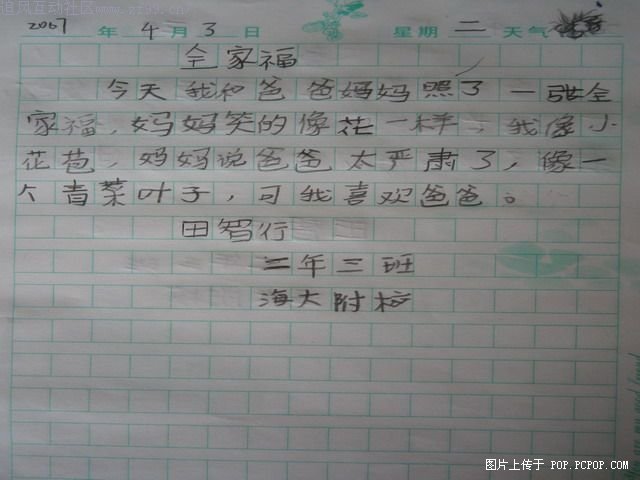 追风互动社区www.zf99.cn
2007年4月3日 星期二天气
全家福
今天我和爸爸妈妈照了一张全
家福,妈妈笑的像花一样,我像小
花苞,妈妈说爸爸太严肃了,像一
个青菜叶子,可我喜欢爸爸。
田智行
二年三班
海大附校
图片上传于 POP.PCPOP.COM